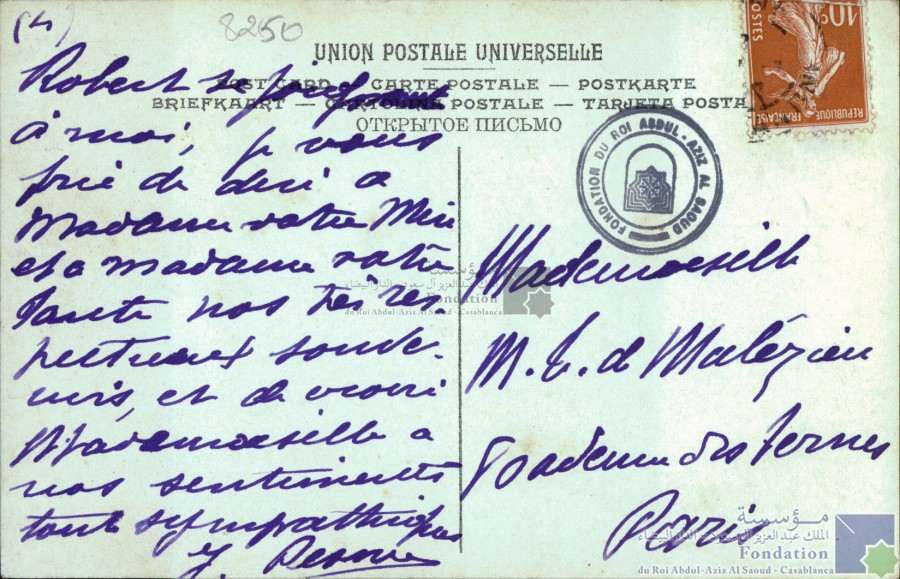 (4)
8250
UNION POSTALE UNIVERSELLE
POST CARD — CARTE POSTALE — POSTKARTE
BRIEFKAART — CARTOLINA POSTALE — TARJETA POSTA
ОТКРЫТОЕ ПИСЬМО
RÉPUBLIQUE FRANÇAISE
POSTES
10c
FONDATION DU ROI ABDUL-AZIZ AL SAOUD
Robert se joignant
à moi, je vous
prie de dire a
Madame votre Mère
et a madame votre
tante nos très res
pectueux souve-
nirs, et de croire
Mademoiselle a
nos sentiments
tout sympathiques
Mademoiselle
M. T. de Malézieu
des Ternes
Paris
مؤسسة
الملك عبد العزيز آل سعود - الدار البيضاء
Fondation
du Roi Abdul-Aziz Al Saoud - Casablanca
مؤسسة
الملك عبد العزيز آل سعود - الدار البيضاء
Fondation
du Roi Abdul-Aziz Al Saoud - Casablanca